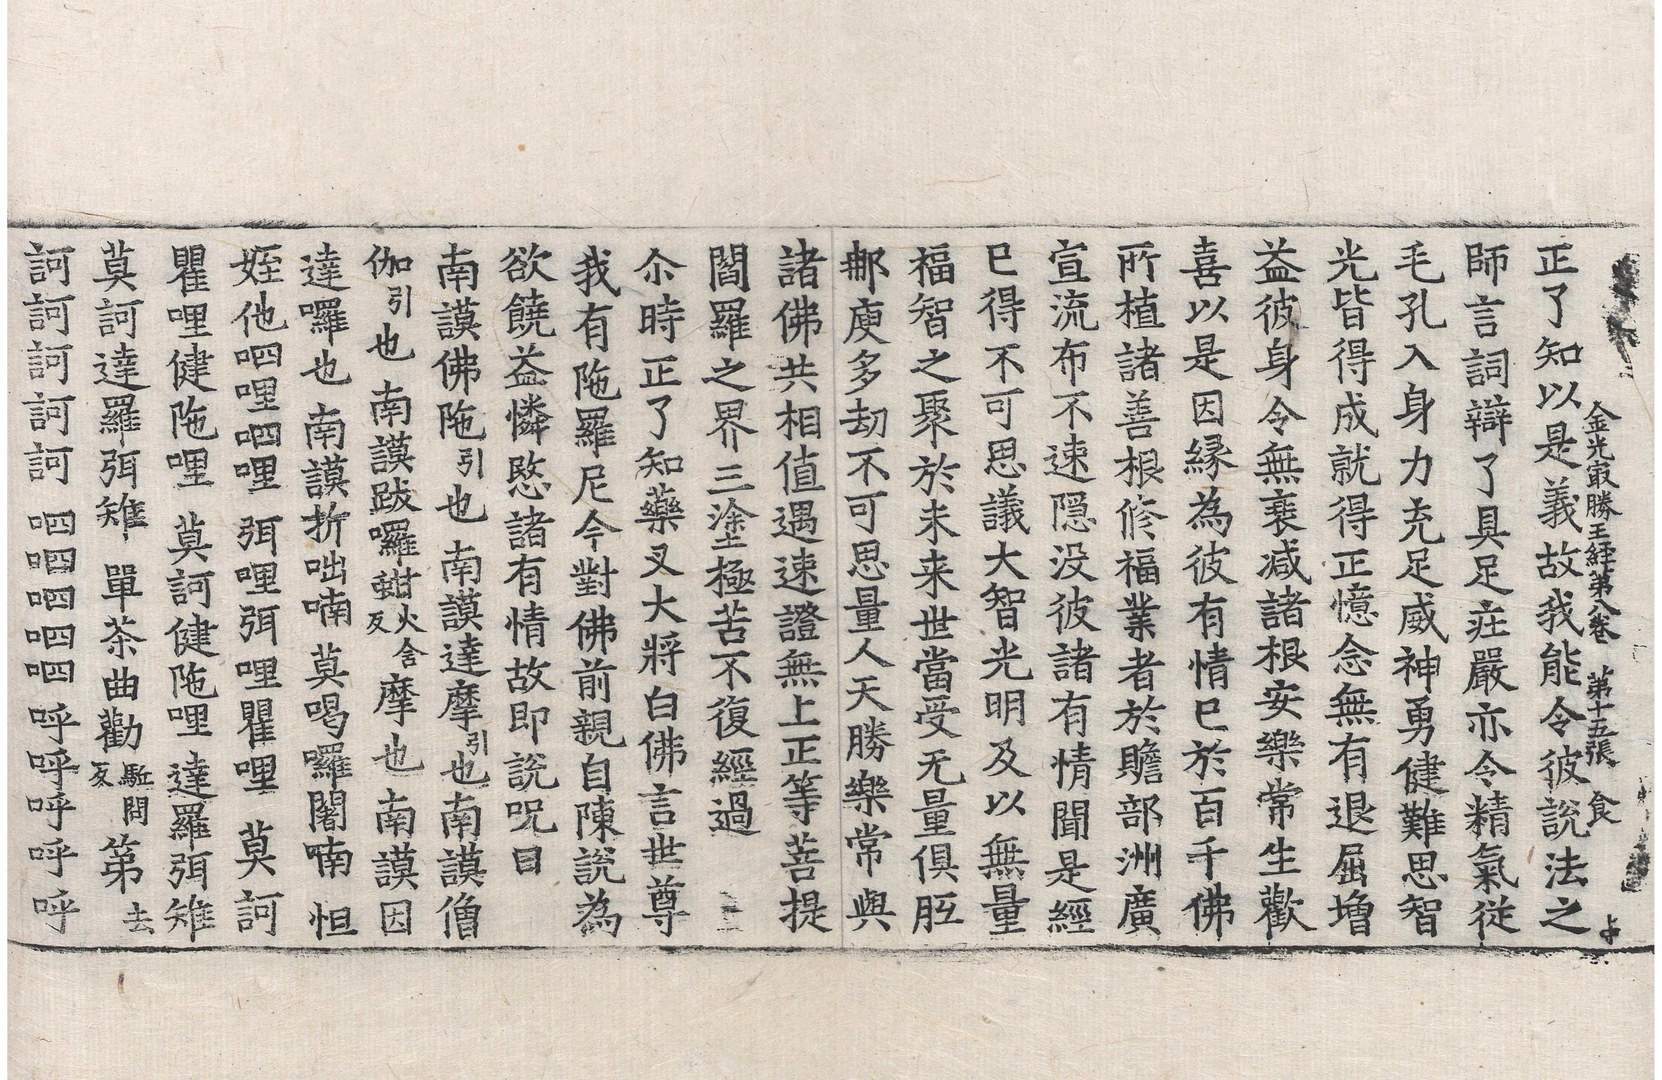 金光㝡勝王経第八卷 第十五張 食
正了知以是義故我能令彼說法之
師言詞辯了具足莊嚴亦令精氣從
毛孔入身力充足威神勇健難思智
光皆得成就得正憶念無有退屈增
益彼身令無衰減諸根安樂常生歡
喜以是因緣為彼有情已於百千佛
所植諸善根修福業者於贍部洲廣
宣流布不速隱没彼諸有情聞是經
已得不可思議大智光明及以無量
福智之聚於未来世當受无量俱胝
那庾多劫不可思量人天勝樂常與
諸佛共相值遇速證無上正等菩提
閻羅之界三塗極苦不復經過
尒時正了知藥叉大將白佛言世尊
我有陁羅尼今對佛前親自陳說為
欲饒益憐愍諸有情故即說呪曰
南謨佛陁引也 南謨達摩引也南謨僧
伽引也 南謨跋囉蚶火含反摩也南謨因
達囉也 南謨折咄喃 莫喝囉闍喃 怛
姪他呬哩呬哩 弭哩弭哩瞿哩 莫訶
瞿哩健陁哩 莫訶健陁哩 達羅弭雉
莫訶達羅弭雉 單茶曲勸駈問反第去
訶訶訶訶訶 呬呬呬呬 呼呼呼呼呼